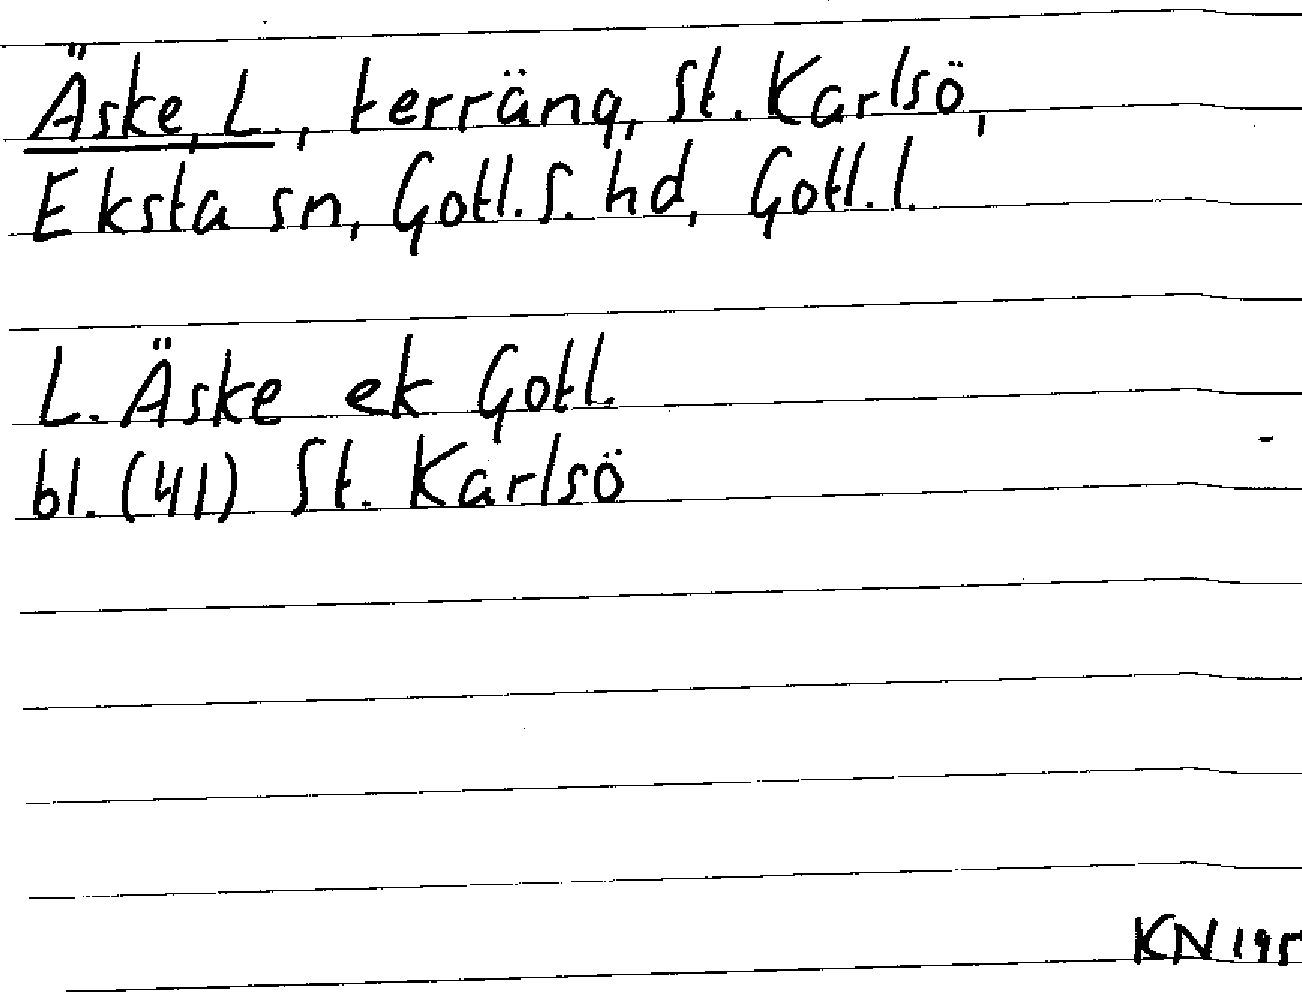 Äske, L., terräng, St. Karlsö,
Eksta sn, Gotl. S. hd, Gotl. l.
L. Äske ek Gotl.
bl. (41) St. Karlsö
KN 195